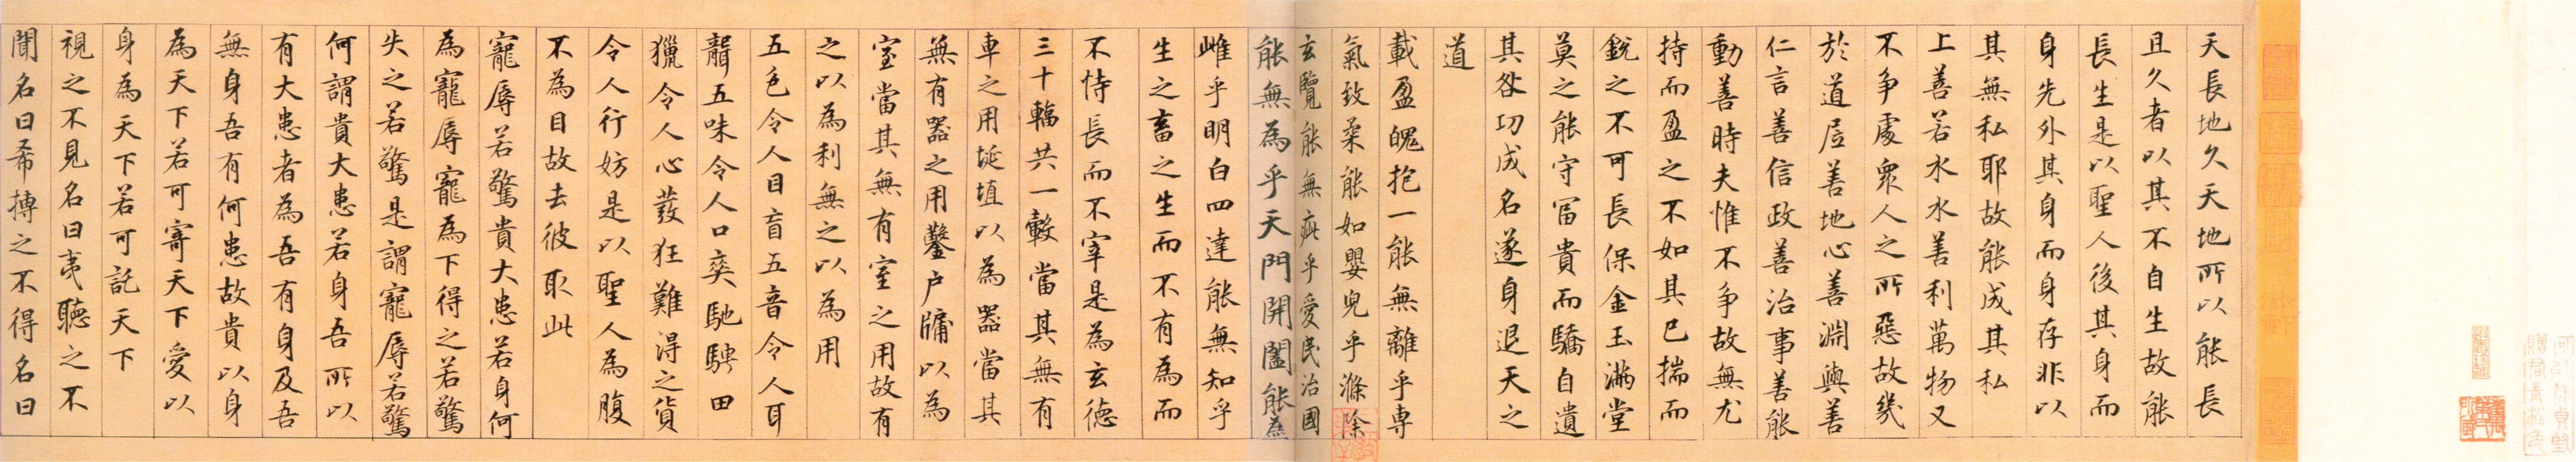 天長地久天地所以能長
且久者以其不自生故能
長生是以聖人後其身而
身先外其身而身存非以
其無私耶故能成其私
上善若水水善利萬物又
不爭處眾人之所惡故幾
於道居善地心善淵與善
仁言善信政善治事善能
動善時夫惟不爭故無尤
持而盈之不如其已揣而
銳之不可長保金玉滿堂
莫之能守富貴而驕自遺
其咎功成名遂身退天之
道
載盈魄抱一能無離乎專
氣致柔能如嬰兒乎滌除
玄覽能無疵乎愛民治國
能無為乎天門開闔能為
雌乎明白四達能無知乎
生之畜之生而不有為而
不恃長而不宰是為玄德
三十輻共一轂當其無有
車之用埏埴以為器當其
無有器之用鑿戶牖以為
室當其無有室之用故有
之以為利無之以為用
五色令人目盲五音令人耳
聾五味令人口爽馳騁田
獵令人心發狂難得之貨
令人行妨是以聖人為腹
不為目故去彼取此
寵辱若驚貴大患若身何
為寵辱寵為下得之若驚
失之若驚是謂寵辱若驚
何謂貴大患若身吾所以
有大患者為吾有身及吾
無身吾有何患故貴以身
為天下若可寄天下愛以
身為天下若可託天下
視之不見名曰夷聽之不
聞名曰希摶之不得名曰